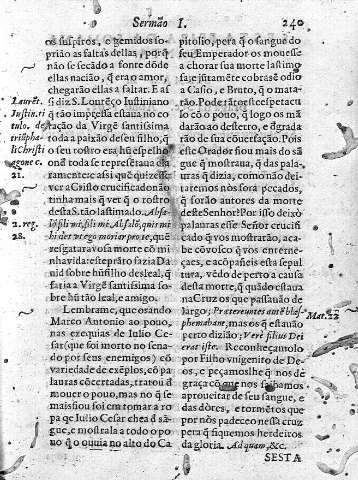 Sermão I. 240
os suspiros, e gemidos so-
prião as faltas dellas, porq̃
não se secādo a fonte dōde
ellas nacião, que era o amor,
chegarão ellas a faltar. E as
si diz S. Lourẽço Iustiniano
q̃ tão impressa estaua no co
ração da Virgẽ santissima
toda a paixão de seu filho, q̃
o seu rostro era hũ espelho
onde toda se represẽtaua cla
ramente: assi que quizesse
ver a Cristo crucificado não
tinha mais q̃ ver que o rostro
desta S. tão lastimado. Absa-
lō fili mi, fili mi, Absalō, quis mi
hi det vt ego moriar pro te, que
resgatara vossa morte cō mi
nha vida: este prāto fazia Da
uid sobre hũ filho desleal, q̃
faria a Virgẽ santissima so-
bre hũ tão leal, e amigo.
Lembrame, que osando
Marco Antonio ao pouo,
nas exequias de Iulio Ce-
sar (que foi morto no sena-
do por seus enemigos) cō
variedade de exẽplos, cō pa
lauras cōcertadas, tratou d̃
mouer o pouo, mas no q̃ se
mais fiou foi em tomar a ro
pa q̃ Iulio Cesar hea d̃ sā-
gue, e mostrala a todo o po
uo q̃ o ouuia no alto do Ca
pitolio, pera q̃ o sangue do
seu Emperador os mouesse
a chorar sua morte lastimo
sa, e jũtamẽte cobrasẽ odio
a Casio, e Bruto, q̃ o mata-
rão. Pode tāto este espetacu
lo cō o pouo, q̃ logo os mā
darão ao desterro, e degrada
rão de sua cōuersação. Pois
este Orador fiou mais do sā
gue q̃ mostraua, q̃ das pala-
uras q̃ dizia, como não dei-
taremos nòs fora pecados,
q̃ forão autores da morte
deste Senhor? Por isso deixò
palauras esse Señor crucifi
cado q̃ vos mostrarão, aca-
be cōuosco q̃ vos enterne-
çaes, e acōpaneis esta sepul
tura, vẽdo de perto a causa
desta morte, q̃ quādo estaua
na Cruz os que passauão de
largo; Pratereuntes autẽ blas-
phemabant, mas os q̃ estauão
perto diziāo; Verè filius Dei
erat iste. Reconheçamolo
por Filho vnigenito de De-
os, e peçamoslhe q̃ nos de
graça cō que nos saibamos
aproueitar de seu sangue, e
das dòres, e tormẽtos que
por nòs padeceo nessa cruz
pera q̃ fiquemos herdeiros
da gloria. Ad quam, &c.
SESTA
Laurẽt.
Iustin. ti
tulo. de
triũpha-
li Christi
agone c.
21.
2. reg.
28.
Mat. 22